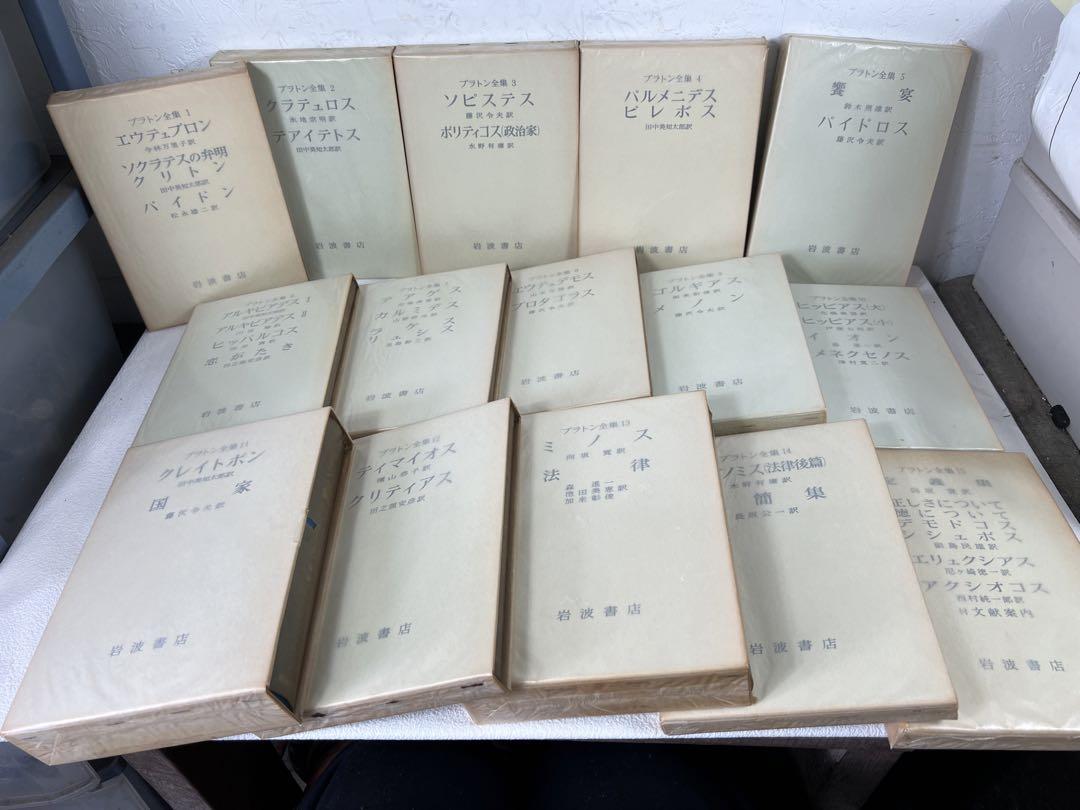 プラトン全集 1
エウテュプロン
今林万里子訳
ソクラテスの弁明
クリトン
田中美知太郎訳
パイドン
松永雄二訳
岩波書店
プラトン全集 2
クラテュロス
水地宗明訳
テアイテトス
田中美知太郎訳
岩波書店
プラトン全集 3
ソピステス
藤沢令夫訳
ポリティコス(政治家)
水野有庸訳
岩波書店
プラトン全集 4
パルメニデス
ピレボス
田中美知太郎訳
岩波書店
プラトン全集 5
饗宴
鈴木照雄訳
パイドロス
藤沢令夫訳
岩波書店
プラトン全集 6
アルキビアデス I
アルキビアデス II
ヒッパルコス
恋がたき
田之頭安彦訳
岩波書店
テアゲス
カルミデス
ラケス
リュシス
岩波書店
プラトン全集 8
エウテュデモス
プロタゴラス
藤沢令夫訳
岩波書店
プラトン全集 9
ゴルギアス
メノン
藤沢令夫訳
岩波書店
プラトン全集 10
ヒッピアス(大)
ヒッピアス(小)
イオン
メネクセノス
津村寛二訳
岩波書店
プラトン全集 11
クレイトポン
田中美知太郎訳
国家
藤沢令夫訳
岩波書店
プラトン全集 12
ティマイオス
種山恭子訳
クリティアス
田之頭安彦訳
岩波書店
プラトン全集 13
ミノス
向坂寛訳
法律
森進一
池田美恵訳
加来彰俊
岩波書店
プラトン全集 14
ノミス(法律後篇)
水野有庸訳
簡集
長坂公一訳
岩波書店
プラトン全集 15
定義集
向坂寛訳
正しさについて
徳について
デモドコス
シシュポス
副島民雄訳
エリュクシアス
尼ヶ崎徳一訳
アクシオコス
西村純一郎訳
付 文献案内
岩波書店